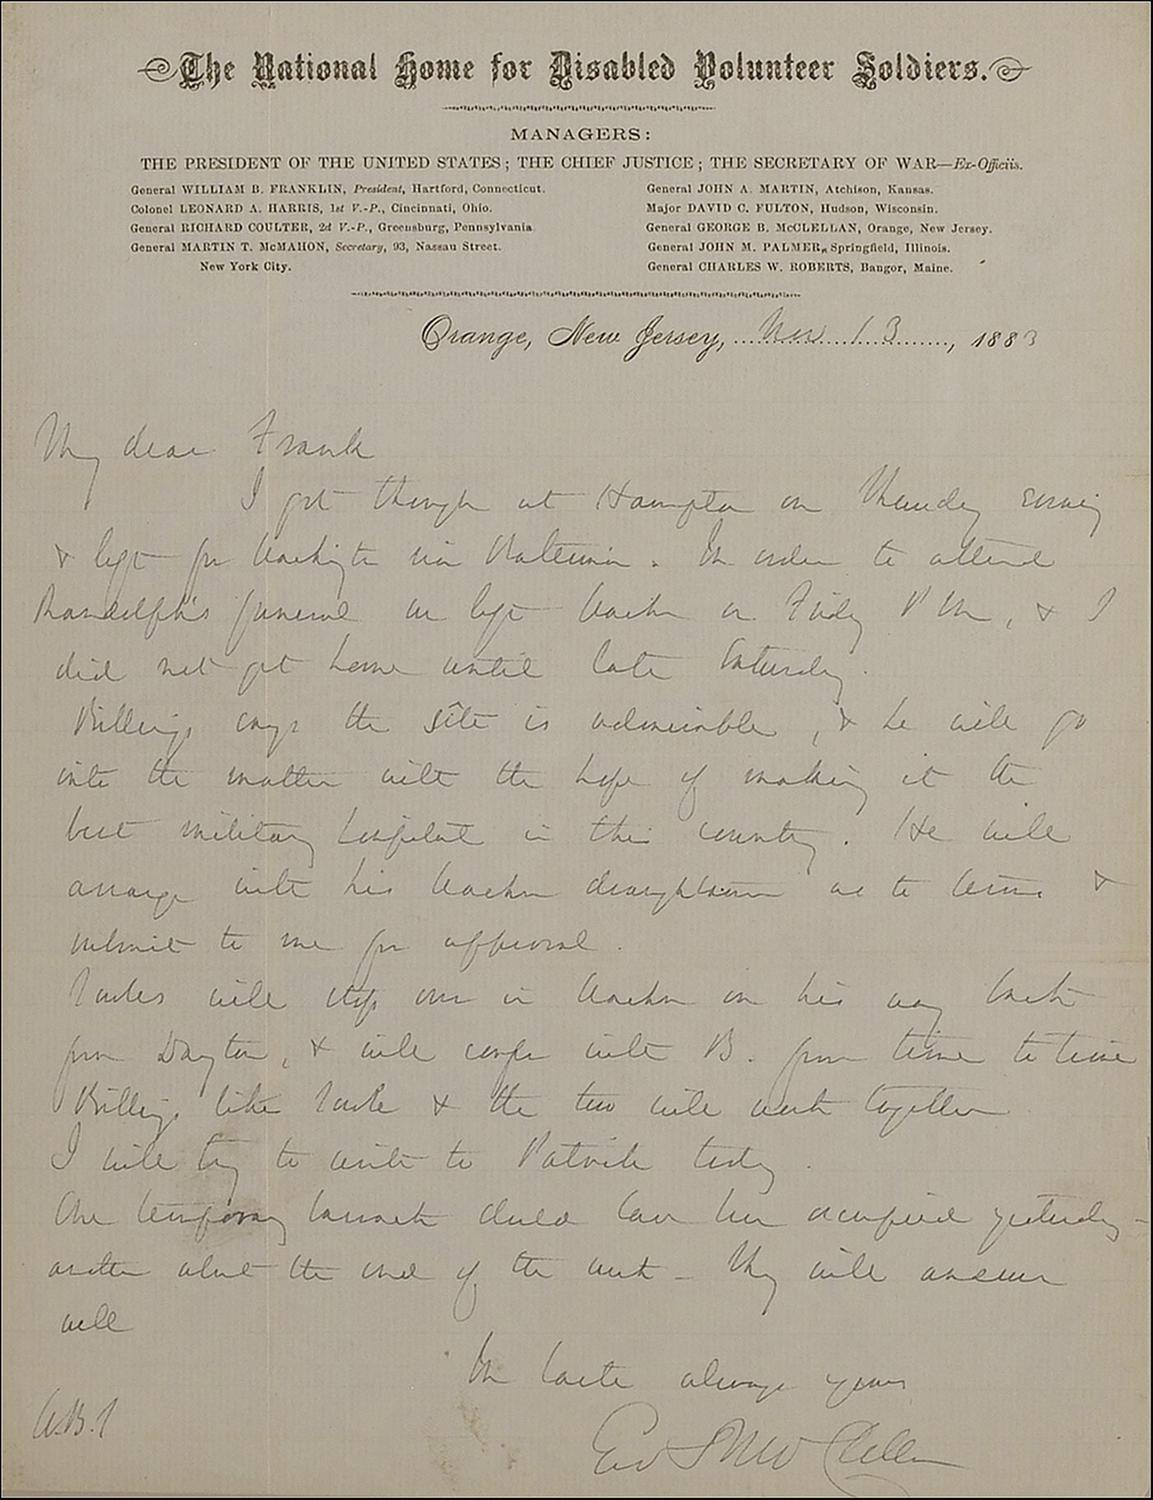 The National Home for Disabled Volunteer Soldiers.
MANAGERS:
THE PRESIDENT OF THE UNITED STATES; THE CHIEF JUSTICE; THE SECRETARY OF WAR—Ex-Officiis.
General WILLIAM B. FRANKLIN, President, Hartford, Connecticut.
Colonel LEONARD A. HARRIS, 1st V.-P., Cincinnati, Ohio.
General RICHARD COULTER, 2d V.-P., Greensburg, Pennsylvania
General MARTIN T. McMAHON, Secretary, 93, Nassau Street.
New York City.
General JOHN A. MARTIN, Atchison, Kansas.
Major DAVID C. FULTON, Hudson, Wisconsin.
General GEORGE B. McCLELLAN, Orange, New Jersey.
General JOHN M. PALMER, Springfield, Illinois.
General CHARLES W. ROBERTS, Bangor, Maine.
Orange, New Jersey, Nov 13, 1883
My dear Frank
I got through at Hampton on Thursday evening
& left for Washington via Baltimore. In order to attend
Randolph's funeral we left Washn on Friday P M, & I
did not get home until late Saturday.
Billings says the site is admirable, & he will go
into the matter with the hope of making it the
best military hospital in this country. He will
arrange with his Washn draughtsman as to terms &
submit to me for approval.
will stop over in Washn on his way back
from Dayton, & will confer with B. from time to time
Billings likes & the two will work together
I will try to write to Patrick today.
One temporary barrack should have been occupied yesterday -
another about the end of the week - They will answer
well
In haste always yours
Geo B McClellan
W.B.F